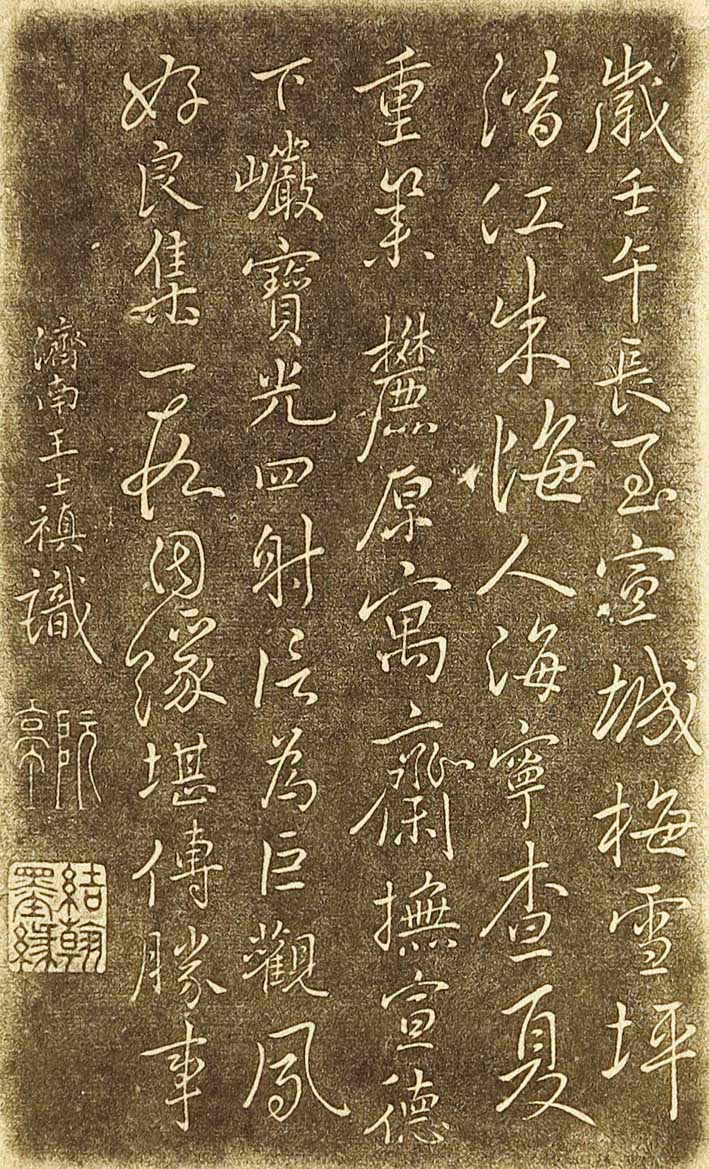 歲壬午長至宣城梅雪坪
潛江朱悔人海寧查夏
重集麓原寓齋撫宣德
下巖寶光四射信為巨觀夙
好良集一夜因緣堪傳勝事
濟南王士禛識
阮亭
結翰墨緣